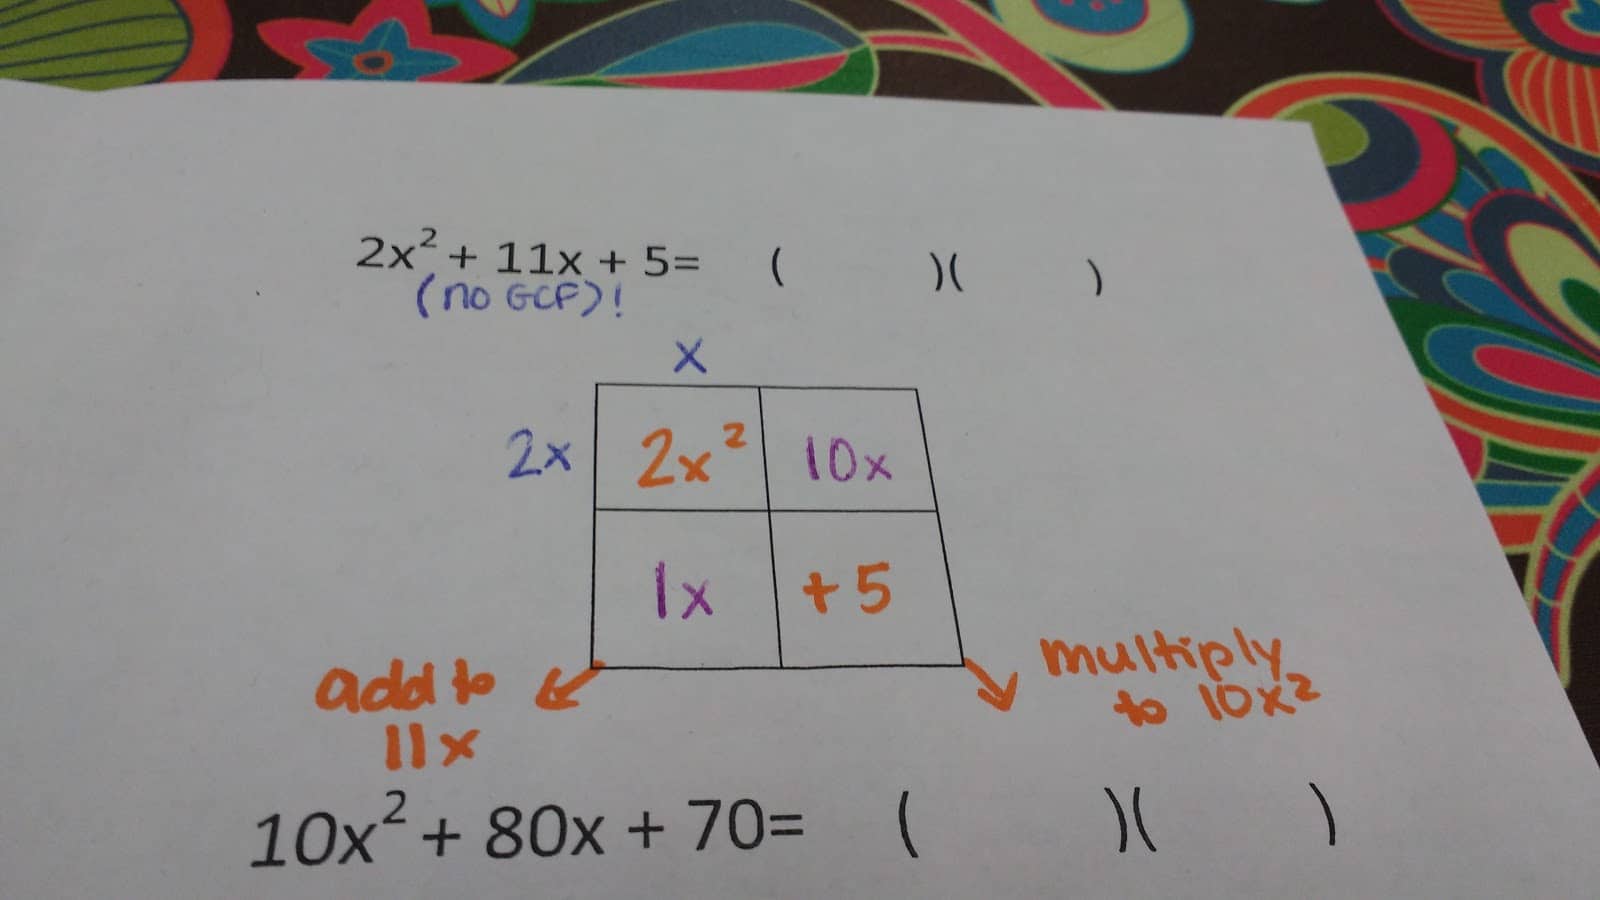 2x² + 11x + 5= (         )(         )
(no GCF)!
x
2x 2x² 10x
1x +5
add to
11x
multiply
to 10x²
10x² + 80x + 70= (         )(         )